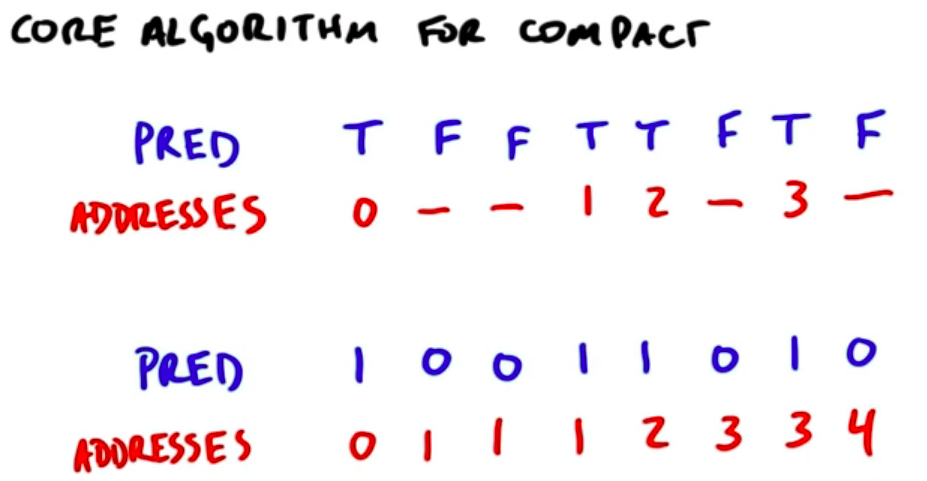 CORE ALGORITHM FOR COMPACT
PRED T F F T T F T F
ADDRESSES 0 – – 1 2 – 3 –
PRED 1 0 0 1 1 0 1 0
ADDRESSES 0 1 1 1 2 3 3 4